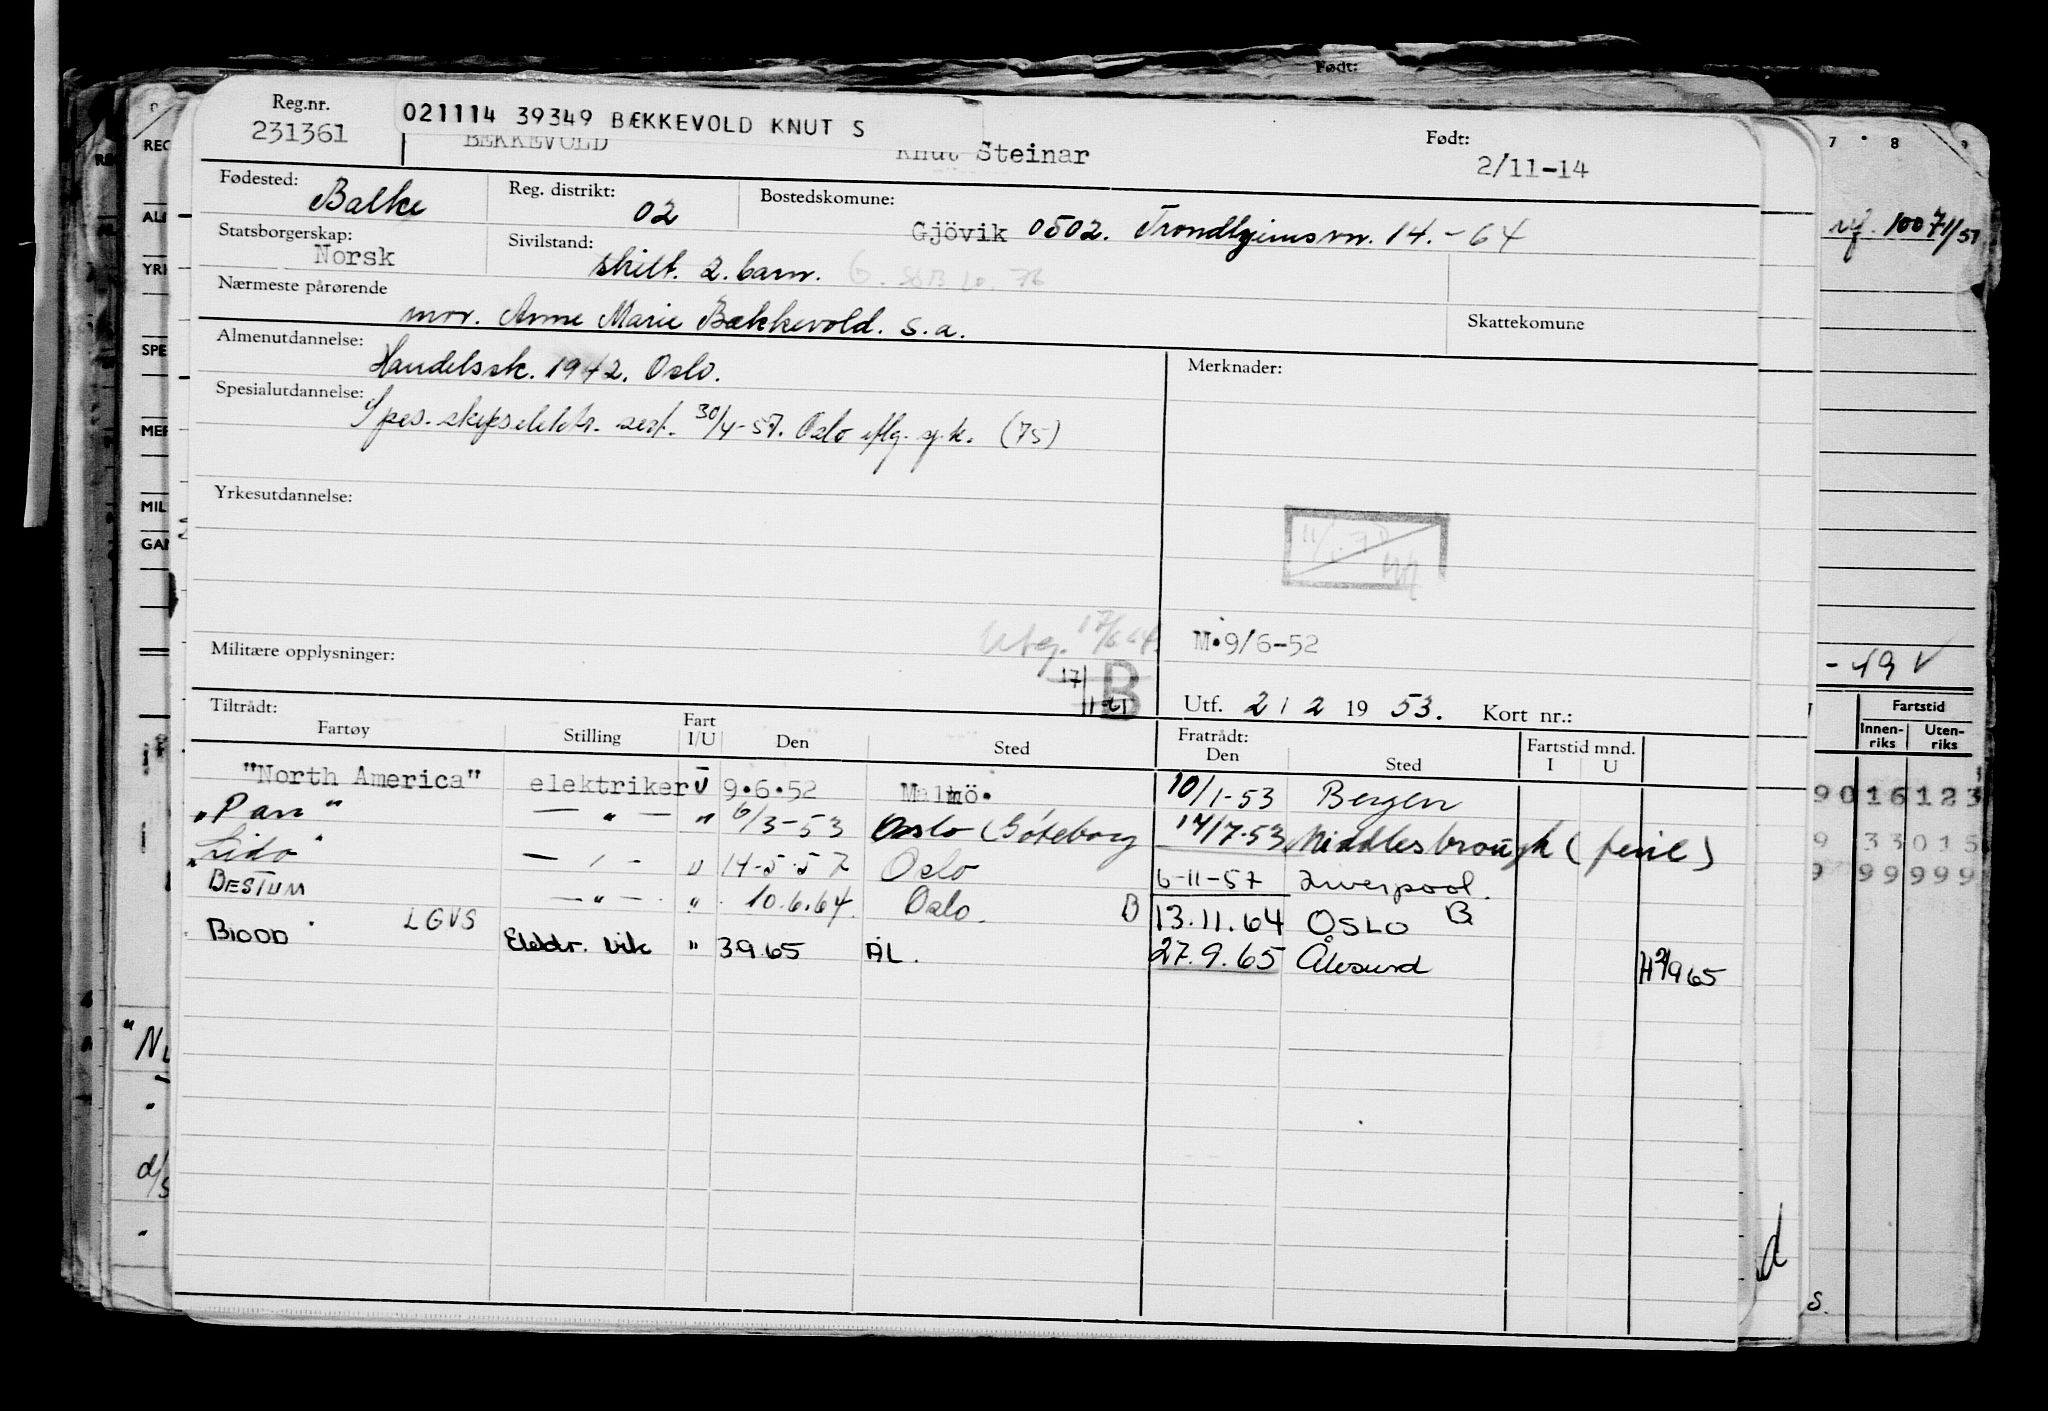 Født:
Reg.nr.
231361
021114 39349 BÆKKEVOLD KNUT S
BEKKEVOLD Knut Steinar
Født:
2/11-14
Fødested: Balke
Reg. distrikt: 02
Bostedskomune: Gjövik 0502. Trondhjemsvn. 14.-64
Statsborgerskap: Norsk
Sivilstand: skilt. 2. barn.
Nærmeste pårørende
mor. Anne Marie Bækkevold. s.a.
Skattekomune
Almenutdannelse: Handelssk. 1942. Oslo.
Merknader:
Spesialutdannelse: Spes. skipselektr. sert. 30/4-57. Oslo (75)
Yrkesutdannelse:
Utg. 17/6 64.
M.9/6-52
Militære opplysninger:
B
Utf. 2 / 2 19 53. Kort nr.:
Tiltrådt:
Fartøy Stilling Fart I/U Den Sted Fratrådt: Den Sted Fartstid mnd. I U
"North America" elektriker U 9.6.52 Malmö. 10/1-53 Bergen
"Pan" — " — " 6/3-53 Oslo (Göteborg 14/7-53 Middlesbrough (ferie)
"Lido" — " — U 14-5-57 Oslo 6-11-57 Liverpool.
BESTUM — " — " 10.6.64. Oslo. B 13.11.64 OSLO B
LGVS
BIOOD Elektr. vik " 3965 ÅL. 27.9.65 Ålesund H2/965
REG
ALI
SPE
MER
MIL
7 8 9
10071/51
- 49 V
Fartstid
Innenriks Utenriks
9 0 1 6 1 2 3
9 3 3 0 1 5
9 9 9 9 9 9
d
S.